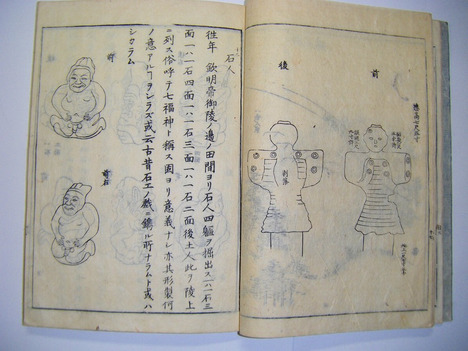 前
後
総高七尺五寸
剥落
石人
往年 欽明帝御陵ノ邊ノ田間ヨリ石人四軀ヲ掘出ス八一石三
面一八一石四面一八一石三面一八一石二面後土人此ヲ陵上
ニ列ス俗呼テ七福神ト稱ス固ヨリ意義ナシ亦其形製何
ノ意アルヿヲシラズ或云古昔石工ノ戯ニ鐫ル所ナラムト或ハ
シカラム
前
前右